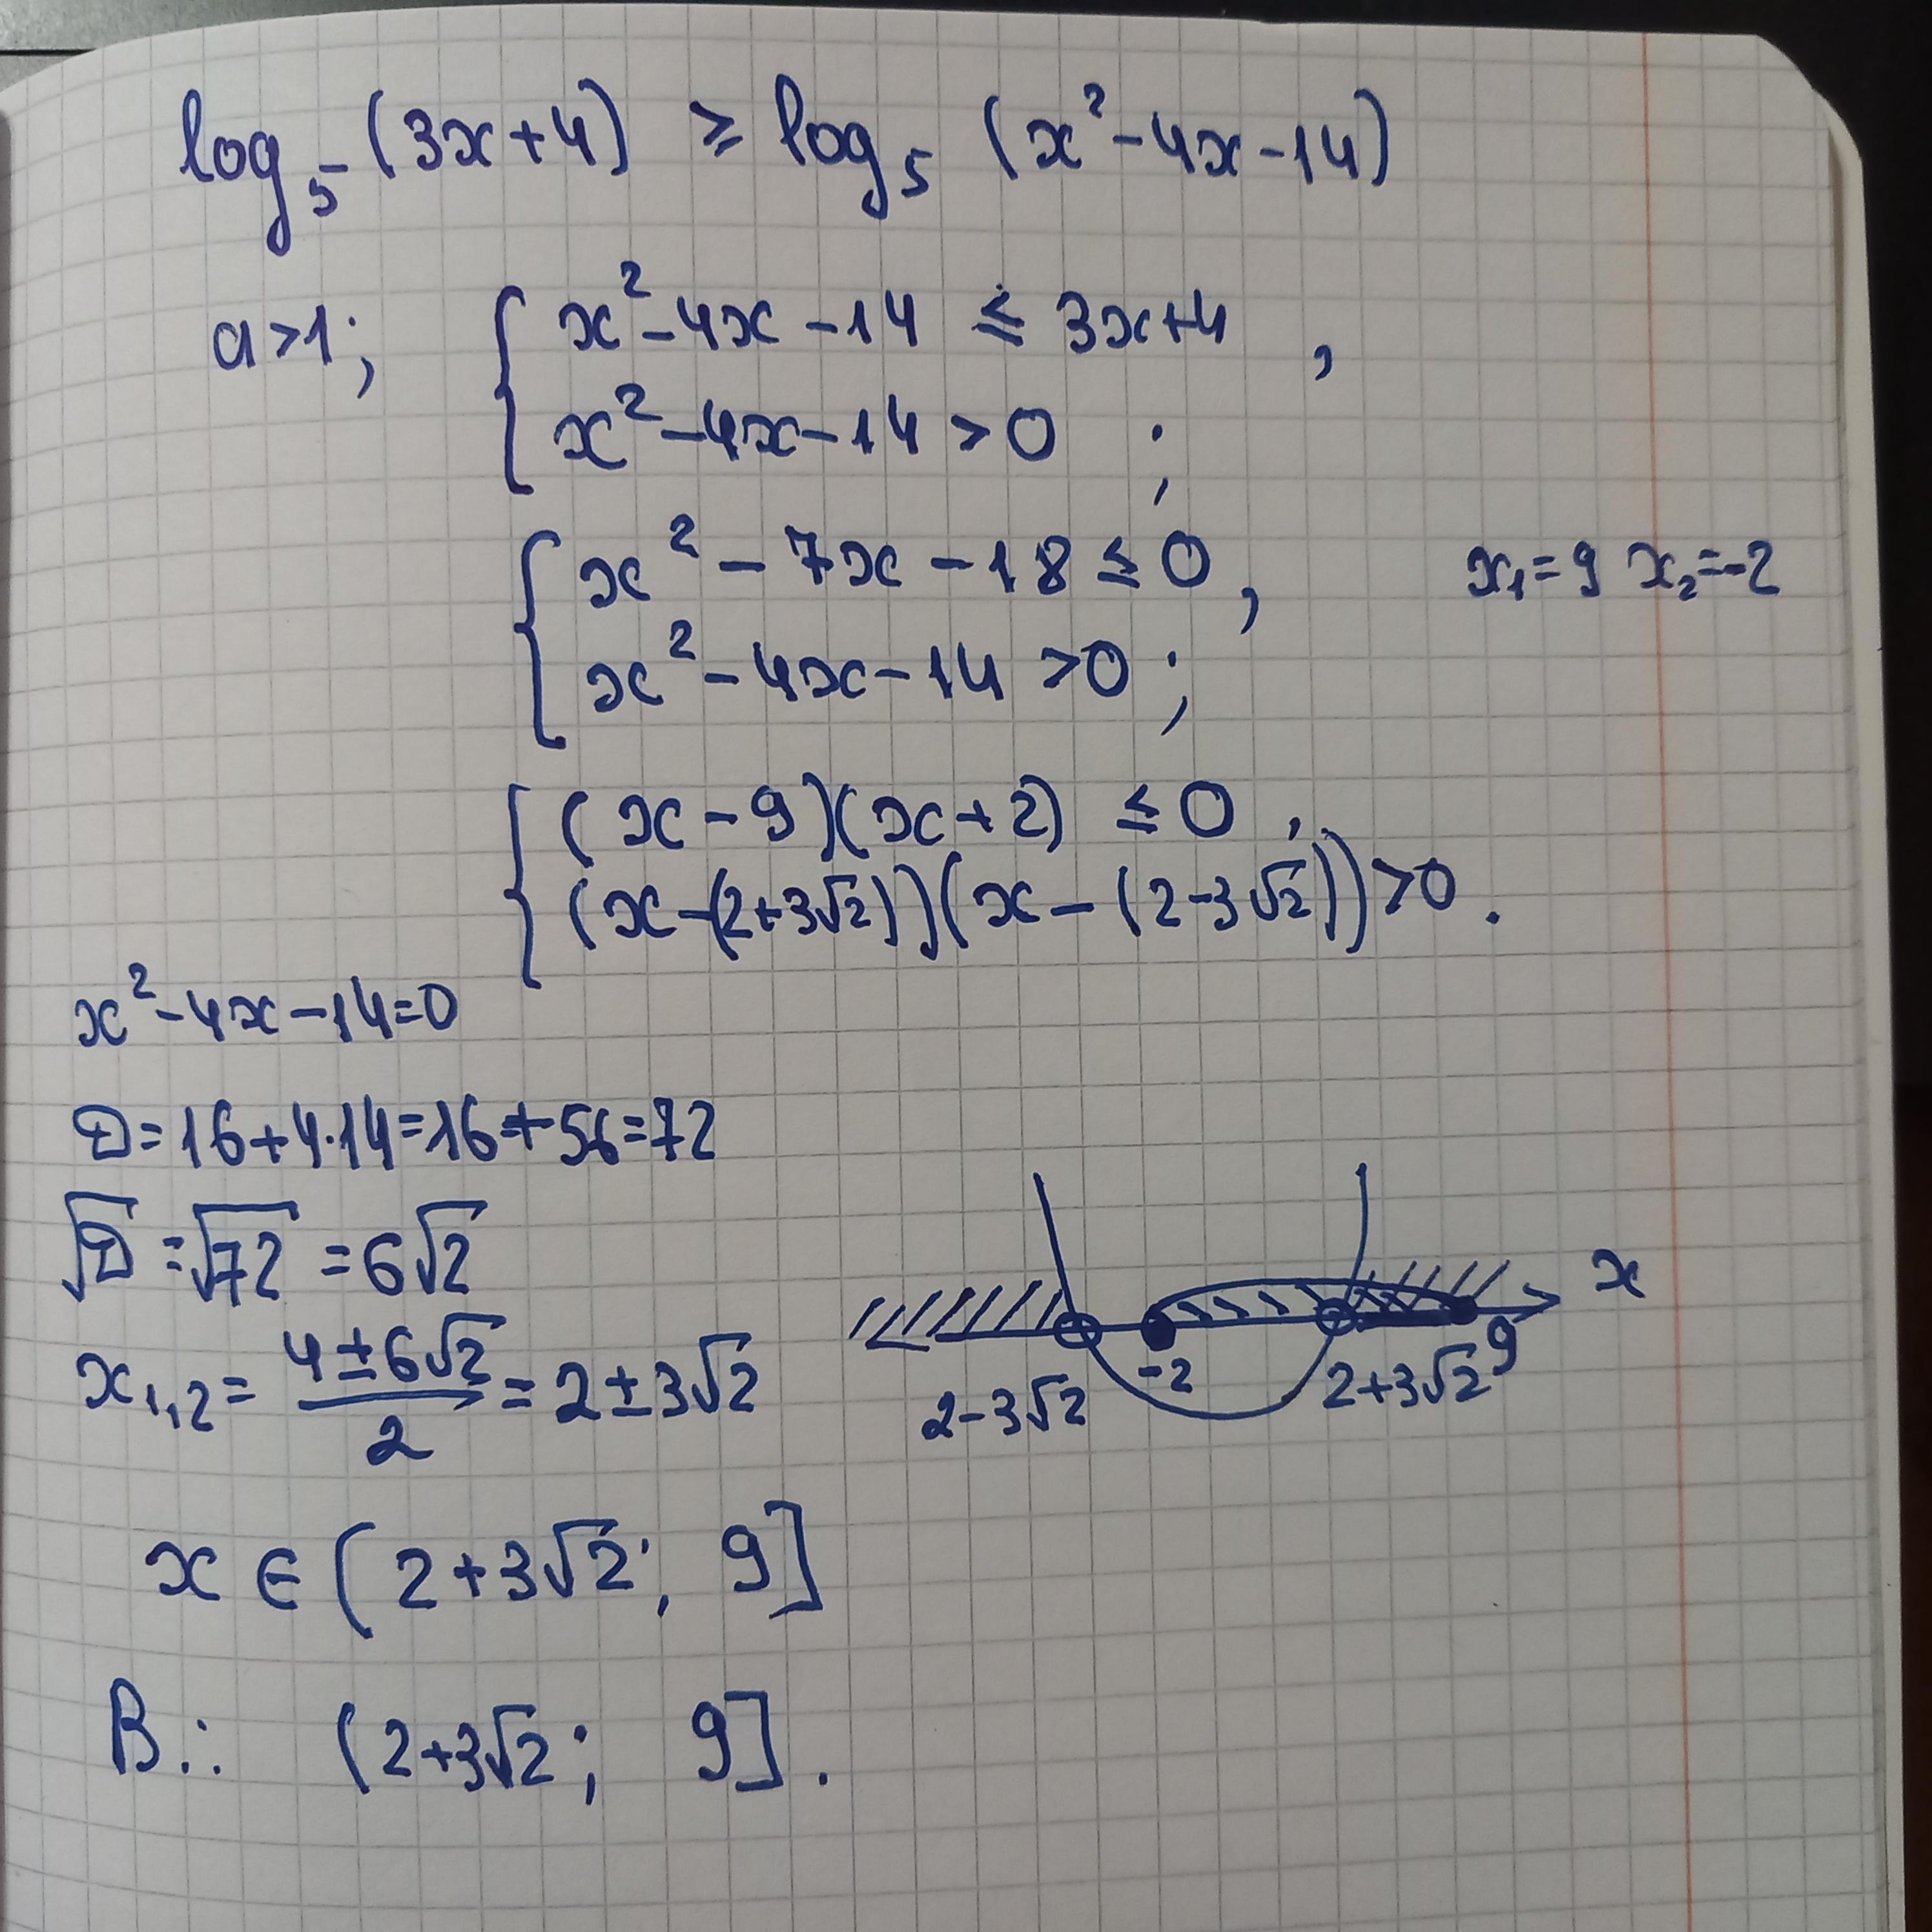 log₅(3x+4) ≥ log₅(x²-4x-14)
a>1; { x²-4x-14 ≤ 3x+4 ,
x²-4x-14>0 ;
{ x²-7x-18≤0, x₁=9 x₂=-2
x²-4x-14>0;
{ (x-9)(x+2) ≤0,
(x-(2+3√2))(x-(2-3√2))>0.
x²-4x-14=0
D=16+4·14=16+56=72
√D=√72=6√2
x₁,₂=(4±6√2)/2=2±3√2
x
2-3√2 -2 2+3√2 9
x∈(2+3√2; 9]
В.: (2+3√2; 9].